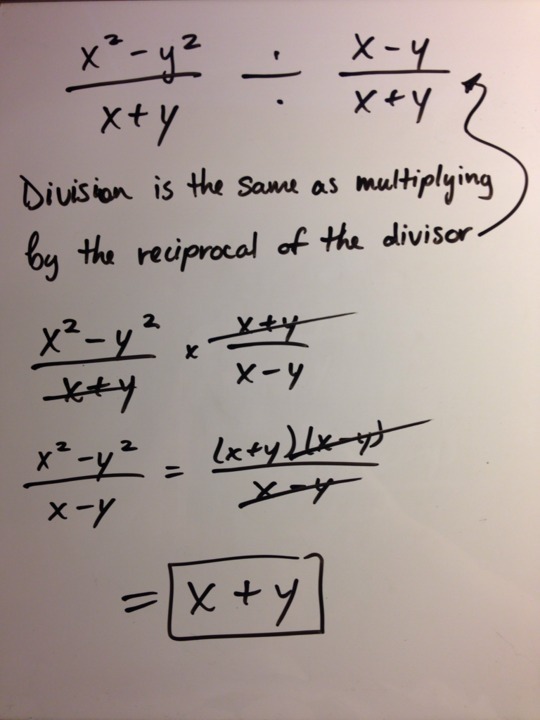 x² - y² / x + y ÷ x - y / x + y
Division is the same as multiplying
by the reciprocal of the divisor
x² - y² / x + y × x + y / x - y
x² - y² / x - y = (x+y)(x-y) / x - y
= x + y